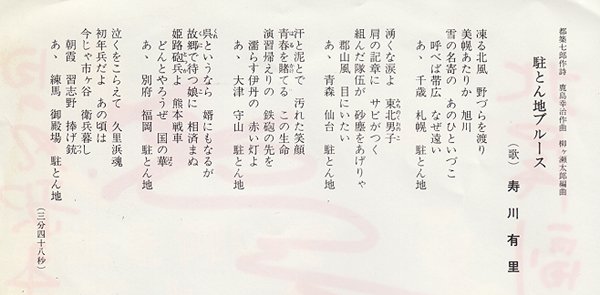 都築七郎作詩 鹿島幸治作曲 柳ヶ瀬太郎編曲
駐とん地ブルース
（歌） 寿川有里
凍る北風 野づらを渡り
美幌あたりか 旭川
雪の名寄の あのひといづこ
呼べば帯広 なぜ遠い
あゝ 千歳 札幌 駐とん地
湧くな涙よ 東北男子
肩の記章に サビがつく
組んだ隊伍が 砂塵をあげりゃ
郡山風 目にいたい
あゝ 青森 仙台 駐とん地
汗と泥とで 汚れた笑顔
青春を賭てる この生命
演習帰えりの 鉄砲の先を
濡らす伊丹の 赤い灯よ
あゝ 大津 守山 駐とん地
呉というなら 婿にもなるが
故郷で待つ娘に 相済まぬ
姫路砲兵よ 熊本戦車
どんとやろうぜ 国の華
あゝ 別府 福岡 駐とん地
泣くをこらえて 久里浜魂
初年兵だよ あの頃は
今じゃ市ヶ谷 衛兵暮し
朝霞 習志野 捧げ銃
あゝ 練馬 御殿場 駐とん地
（三分四十八秒）